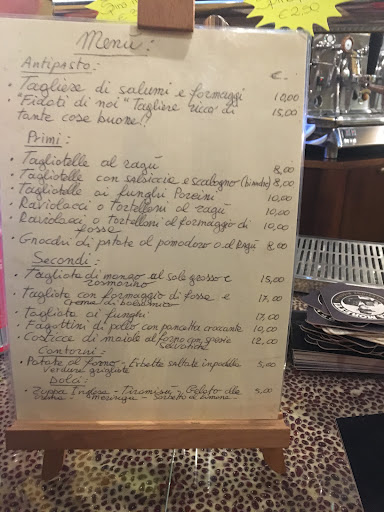 €2,50
Menu:
Antipasto:
€.
• Tagliere di salumi e formaggi 10,00
• "Fidati di noi" Tagliere ricco di 15,00
tante cose buone!!
Primi:
• Tagliatelle al ragù 8,00
• Tagliatelle con salsiccia e scalogno (bianche) 8,00
• Tagliatelle ai funghi Porcini 10,00
• Raviolacci o Tortelloni al ragù 10,00
• Raviolacci o Tortelloni al formaggio di 10,00
fossa
• Gnocchi di patate al pomodoro o al ragù 8,00
Secondi:
• Tagliata di manzo al sale grosso e 15,00
rosmarino
• Tagliata con formaggio di fossa e 17,00
crema di balsamico
• Tagliata ai funghi 17,00
• Fagottini di pollo con pancetta croccante 10,00
• Costicce di maiale al forno con spezie 12,00
selvatiche
Contorni:
• Patate al forno - Erbette saltate in padella 5,00
Verdure grigliate
Dolci:
• Zuppa Inglese - Tiramisù - Gelato alla 5,00
crema - meringa - Sorbetto al limone